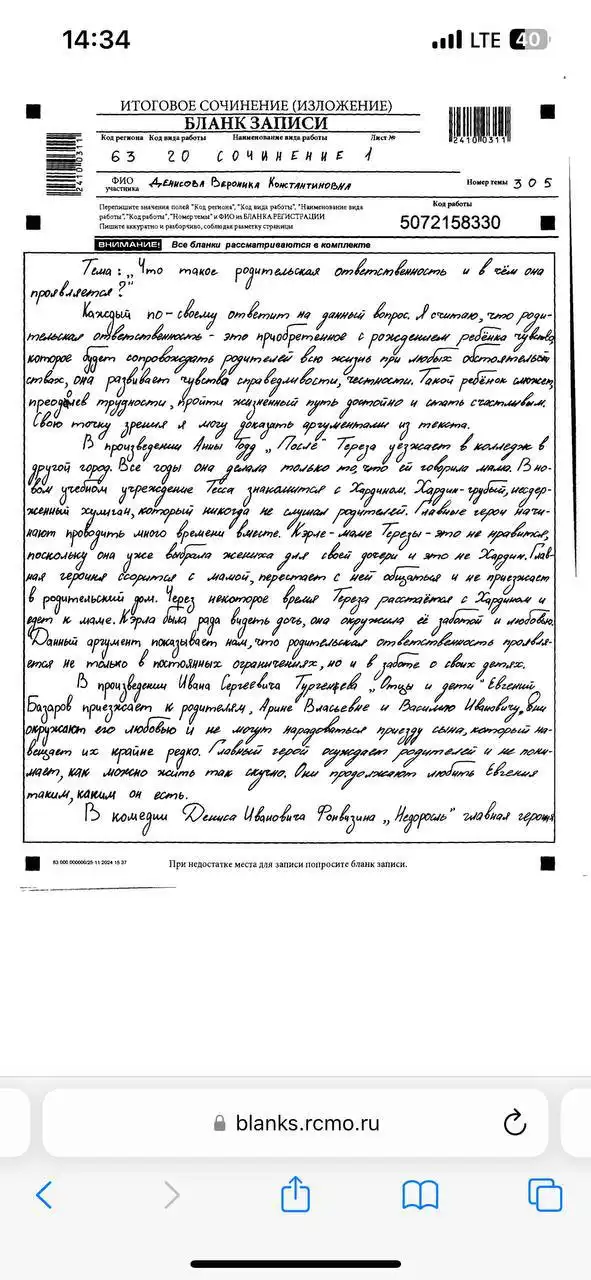 14:34
LTE 40
ИТОГОВОЕ СОЧИНЕНИЕ (ИЗЛОЖЕНИЕ)
БЛАНК ЗАПИСИ
Код региона Код вида работы Наименование вида работы Лист №
63 20 СОЧИНЕНИЕ 1
2410 0311
2410 0311
ФИО участника ДЕНИСОВА ВЕРОНИКА КОНСТАНТИНОВНА Номер темы 305
Перепишите значения полей "Код региона", "Код вида работы", "Наименование вида
работы", "Код работы", "Номер темы" и ФИО из БЛАНКА РЕГИСТРАЦИИ
Пишите аккуратно и разборчиво, соблюдая разметку страницы
Код работы
5072158330
ВНИМАНИЕ! Все бланки рассматриваются в комплекте
Тема: „Что такое родительская ответственность и в чём она
проявляется?"
Каждый по-своему ответит на данный вопрос. Я считаю, что роди-
тельская ответственность - это приобретенное с рождением ребёнка чувство,
которое будет сопровождать родителей всю жизнь при любых обстоятельств
ствах, она развивает чувства справедливости, честности. Такой ребёнок сможет,
преодолев трудности, пройти жизненный путь достойно и стать счастливым.
Свою точку зрения я могу доказать аргументами из текста.
В произведении Анны Тодд „После" Тереза уезжает в колледж в
другой город. Все годы она делала только то, что ей говорила мама. В но-
вом учебном учреждение Тесса знакомится с Хардином. Хардин-грубый, несдер-
женный хулиган, который никогда не слушал родителей. Главные герои начи-
нают проводить много времени вместе. Кэрле-маме Терезы-это не нравится,
поскольку она уже выбрала жениха для своей дочери и это не Хардин. Глав-
ная героиня ссорится с мамой, перестает с ней общаться и не приезжает
в родительский дом. Через некоторое время Тереза расстаётся с Хардином и
едет к маме. Кэрла была рада видеть дочь, она окружила её заботой и любовью.
Данный аргумент показывает нам, что родительская ответственность проявля-
ется не только в постоянных ограничениях, но и в заботе о своих детях.
В произведении Ивана Сергеевича Тургенева „Отцы и дети" Евгений
Базаров приезжает к родителям, Арине Власьевне и Василию Ивановичу, они
окружают его любовью и не могут нарадоваться приезду сына, который на-
вещает их крайне редко. Главный герой осуждает родителей и не пони-
мает, как можно жить так скучно. Они продолжают любить Евгения
таким, каким он есть.
В комедии Дениса Ивановича Фонвизина „Недоросль" главная героиня
63 000 000000/25 11 2024 15 37
При недостатке места для записи попросите бланк записи.
blanks.rcmo.ru